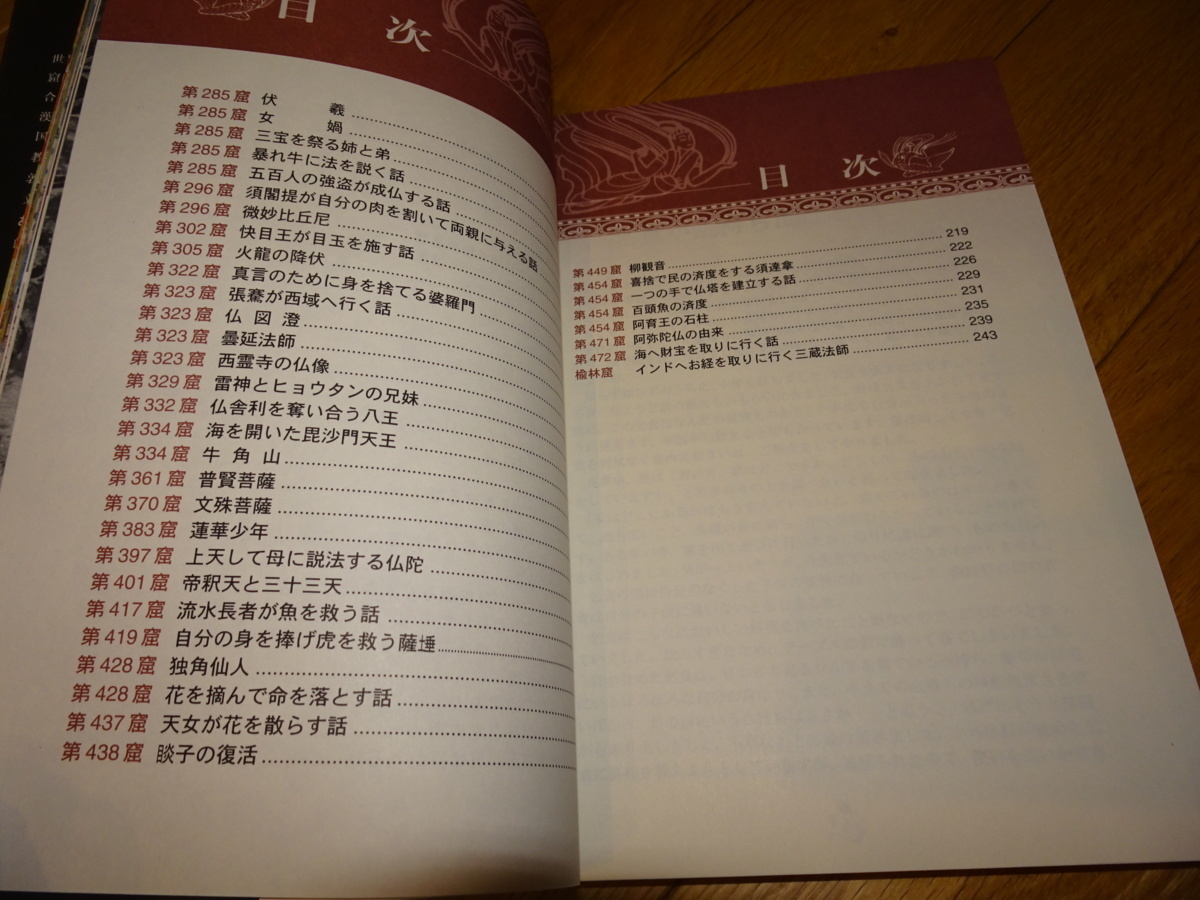 目 次
第285窟 伏 羲
第285窟 女 媧
第285窟 三宝を祭る姉と弟
第285窟 暴れ牛に法を説く話
第285窟 五百人の強盗が成仏する話
第296窟 須闍提が自分の肉を割いて両親に与える話
第296窟 微妙比丘尼
第302窟 快目王が目玉を施す話
第305窟 火龍の降伏
第322窟 真言のために身を捨てる婆羅門
第323窟 張騫が西域へ行く話
第323窟 仏 図 澄
第323窟 曇延法師
第323窟 西霊寺の仏像
第329窟 雷神とヒョウタンの兄妹
第332窟 仏舎利を奪い合う八王
第334窟 海を開いた毘沙門天王
第334窟 牛 角 山
第361窟 普賢菩薩
第370窟 文殊菩薩
第383窟 蓮華少年
第397窟 上天して母に説法する仏陀
第401窟 帝釈天と三十三天
第417窟 流水長者が魚を救う話
第419窟 自分の身を捧げ虎を救う薩埵
第428窟 独角仙人
第428窟 花を摘んで命を落とす話
第437窟 天女が花を散らす話
第438窟 睒子の復活
目 次
第449窟 柳観音 219
第454窟 喜捨で民の済度をする須達拏 222
第454窟 一つの手で仏塔を建立する話 226
第454窟 百頭魚の済度 229
第454窟 阿育王の石柱 231
第471窟 阿弥陀仏の由来 235
第472窟 海へ財宝を取りに行く話 239
楡林窟 インドへお経を取りに行く三蔵法師 243